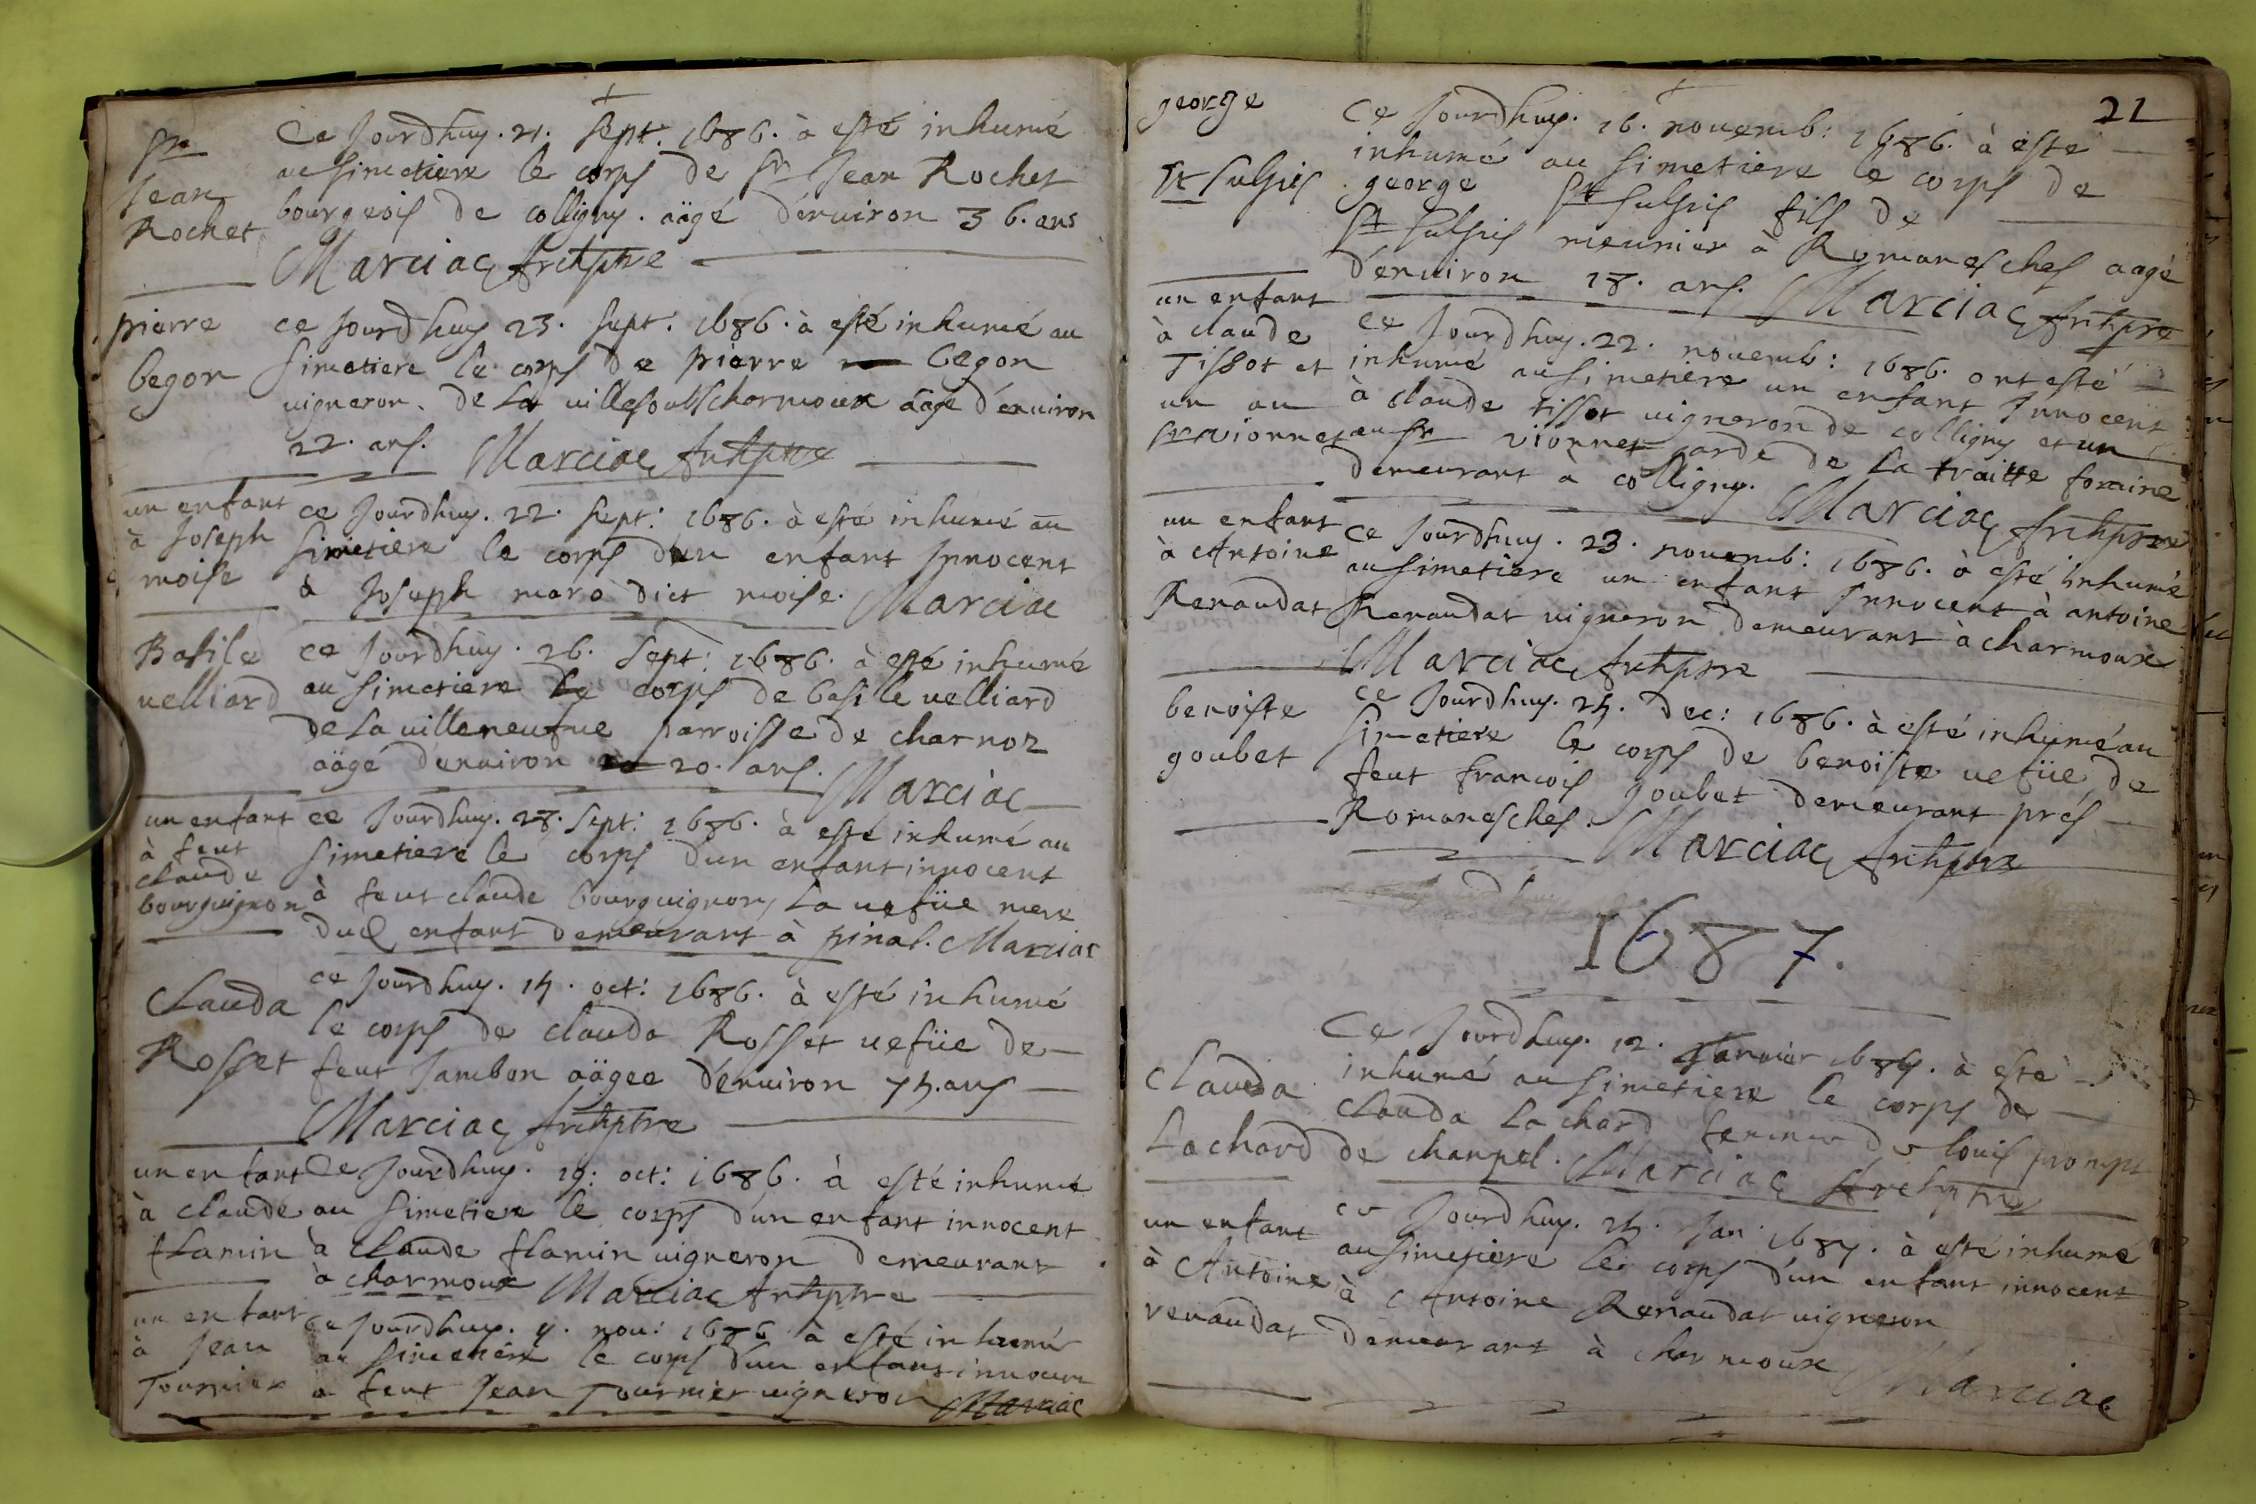 Sr
Jean
Rochet
Ce Jourdhuy. 21. Sept. 1686. à esté inhumé
au simetiere le corps de Sr Jean Rochet
bourgeois de colligny. aägé d'enuiron 36. ans
Marciac Archptre
pierre
begon
ce Jourdhuy 23. Sept: 1686. à esté inhumé au
simetiere le corps de pierre begon
uigneron. de La uillesoubscharmoux aäge d'enuiron
22. ans. Marciac Archptre
un enfant
à Joseph
moise
ce Jourdhuy. 22. Sept: 1686. à esté inhumé au
simetiere le corps d'un enfant Innocent
à Joseph mara dict moise. Marciac
Basile
uelliard
ce Jourdhuy. 26. Sept: 1686. à esté inhumé
au simetiere Le corps de basile uelliard
de La uilleneufue parroisse de charnoz
aägé d'enuiron 20. ans. Marciac
un enfant
à feut
claude
bourguignon
ce Jourdhuy. 28. Sept: 1686. à esté inhumé au
simetiere le corps d'un enfant innocent
à feut claude bourguignon, La uefüe mere
dud enfant demeurant à pinal. Marciac
Clauda
Rosset
ce Jourdhuy. 14. oct: 1686. à esté inhumé
le corps de clauda Rosset uefüe de
feut Jambon aägee d'enuiron 74. ans
Marciac Archptre
un enfant
à claude
flamin
Ce Jourdhuy. 19: oct: 1686. à esté inhumé
au simetiere le corps d'un enfant innocent
à Claude flamin uigneron demeurant
à charmoux Marciac Archptre
un enfant
à Jean
Tournier
Ce Jourdhuy. 9. nou: 1686 à esté inhumé
au simetiere le corps d'un enfant innocent
à feut Jean Tournier uigneron Marciac
21
george
St Sulpis
Ce Jourdhuy. 16. nouemb: 1686. à esté
inhumé au simetiere le corps de
george St Sulpis fils de
St Sulpis meunier à Romanesches aagé
d'enuiron 18. ans. Marciac Archptre
un enfant
à claude
Tissot et
un au
Sr uionnet
ce Jourdhuy. 22. nouemb: 1686. ont esté
inhumé au simetiere un enfant Innocent
à claude tissot uigneron de colligny et un
au Sr uionnet garde de La traitte foraine
demeurant à colligny. Marciac Archptre
un enfant
à Antoine
Renaudat
Ce Jourdhuy. 23. nouemb: 1686. à esté inhumé
au simetiere un enfant Innocent à antoine
Renaudat uigneron demeurant à charmoux
Marciac Archptre
benoiste
goubet
ce Jourdhuy. 24. Dec: 1686. à esté inhumé au
simetiere le corps de benoïste uefüe de
feut francois goubet demeurant prés
Romanesches. Marciac Archptre
1687.
Clauda
Lachard
Ce Jourdhuy. 12. Januier 1687. à esté
inhumé au simetiere le corps de
Clauda Lachard femme de louis prompt
de chanpel. Marciac Archptre
un enfant
à Antoine
renaudat
ce Jourdhuy. 24. Jan 1687. à esté inhumé
au simetiere le corps d'un enfant innocent
à Antoine Renaudat uigneron
demeurant à charmoux
Marciac